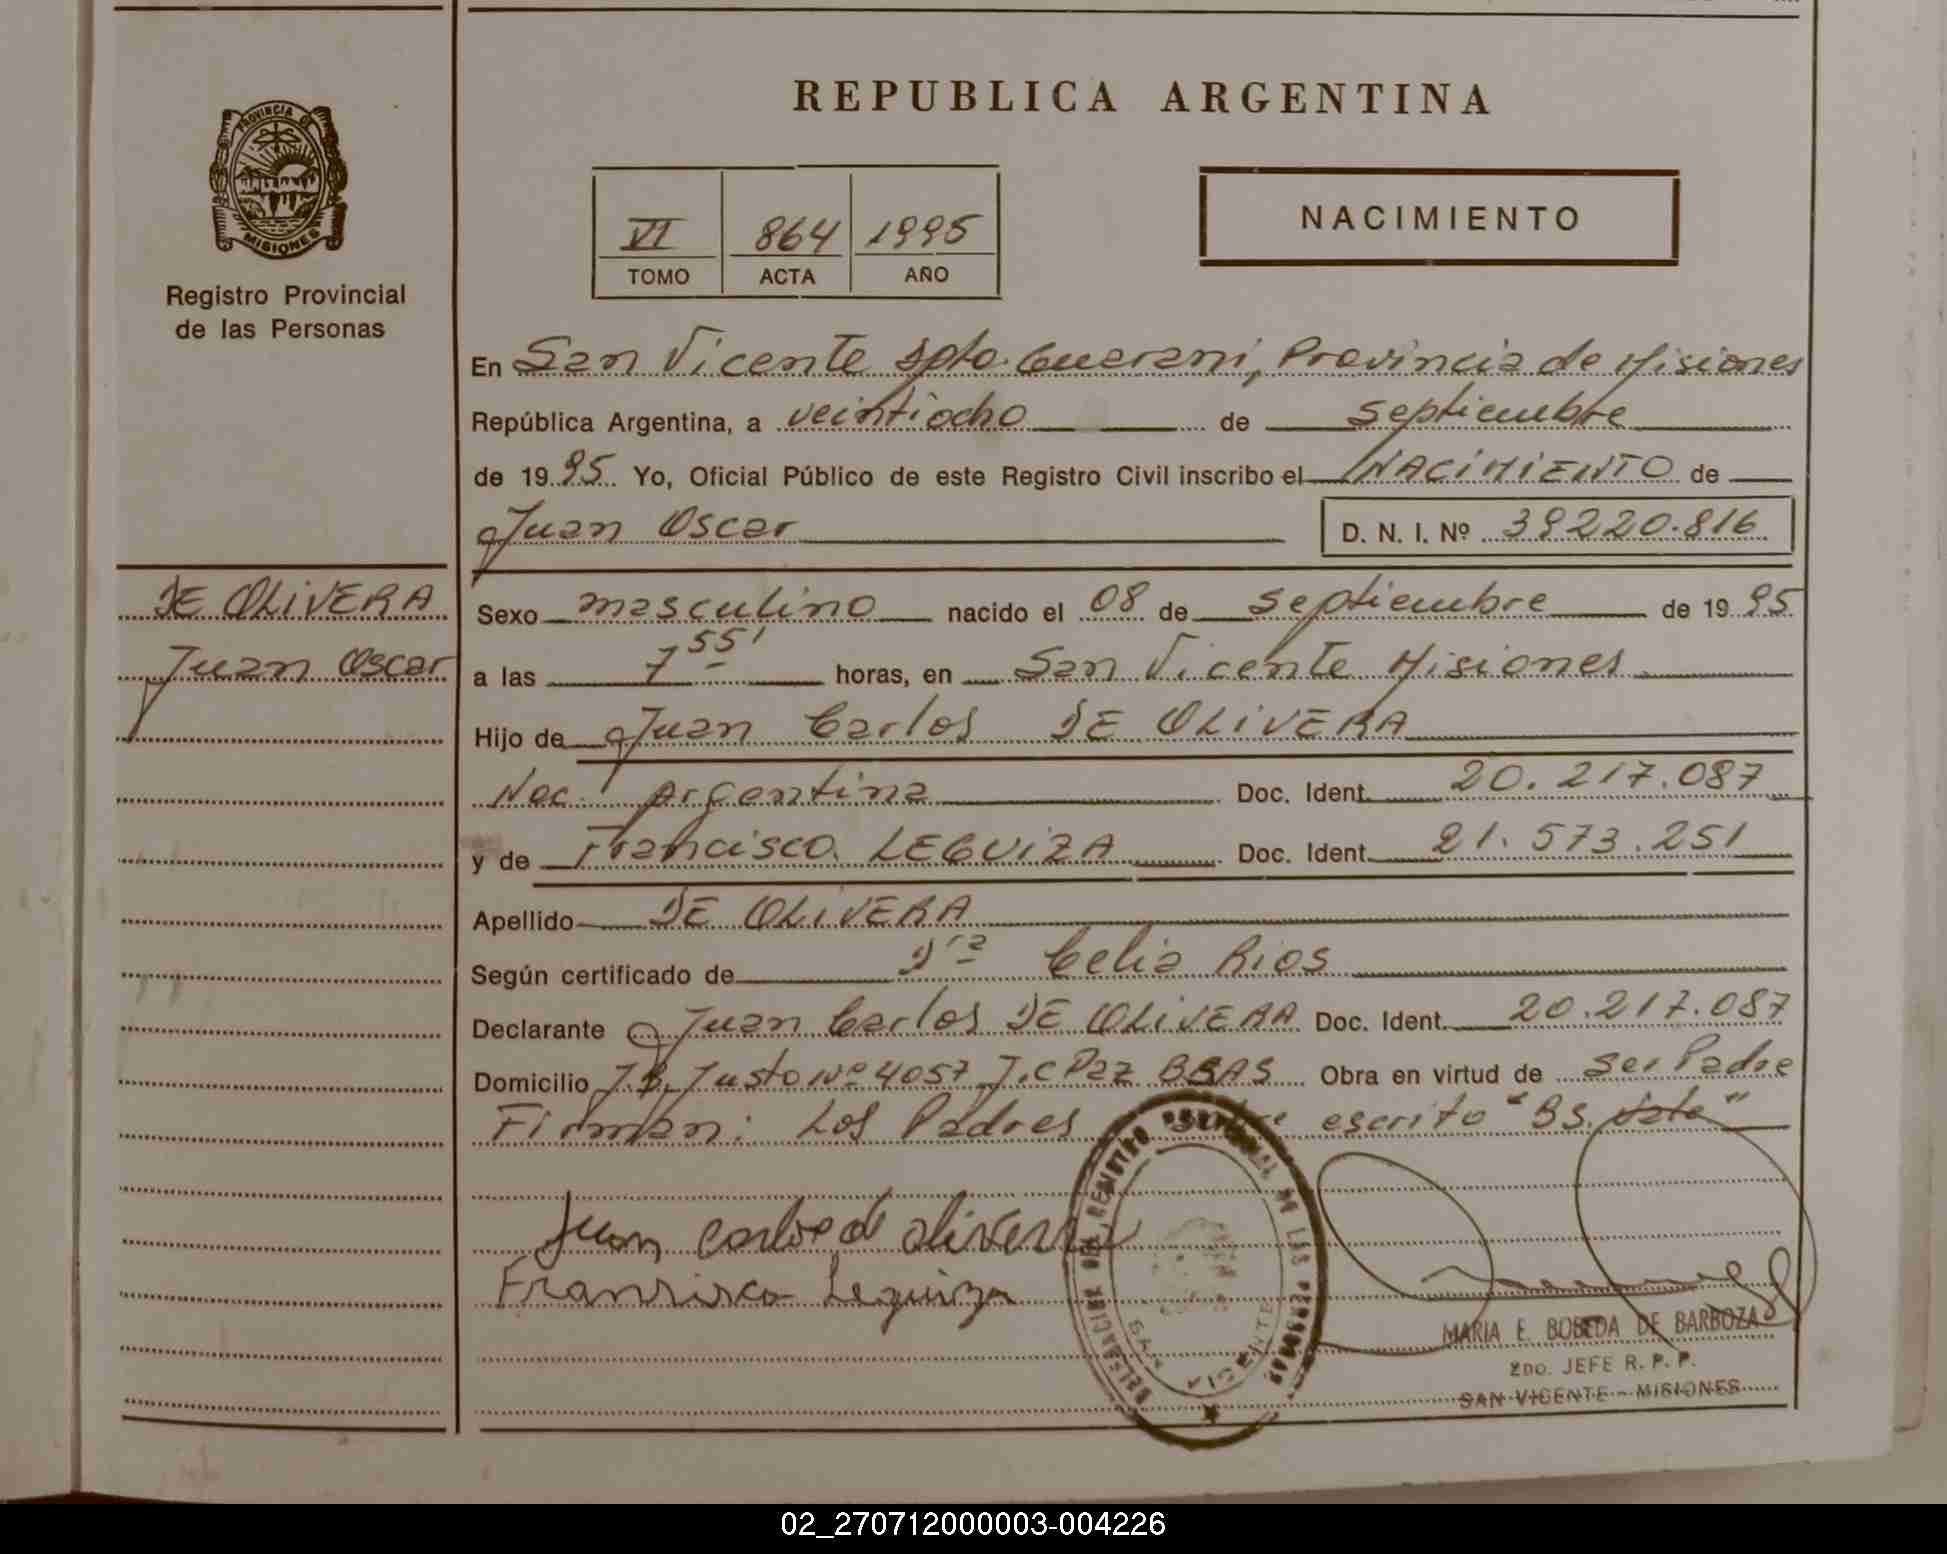 REPUBLICA ARGENTINA
PROVINCIA DE
MISIONES
Registro Provincial
de las Personas
VI 864 1995
TOMO ACTA AÑO
NACIMIENTO
En San Vicente Dpto. Guarani, Provincia de Misiones
República Argentina, a veintiocho de septiembre
de 1995 Yo, Oficial Público de este Registro Civil inscribo el NACIMIENTO de
Juan Oscar D. N. I. Nº 39220.816
DE OLIVERA
Juan Oscar
Sexo masculino nacido el 08 de septiembre de 1995
a las 7 55' horas, en San Vicente Misiones
Hijo de Juan Carlos DE OLIVERA
Nac. Argentina Doc. Ident. 20.217.087
y de Francisca LEGUIZA Doc. Ident. 21.573.251
Apellido DE OLIVERA
Según certificado de Dra Celia Rios
Declarante Juan Carlos DE OLIVERA Doc. Ident. 20.217.087
Domicilio J.B. Justo Nº 4057 J.C Paz BSAS Obra en virtud de ser Padre
Firman: Los Padres escrito "BS.
Juan carlos de olivera
Francisca Leguiza
DELEGACION DEL REGISTRO PROVINCIAL DE LAS PERSONAS
SAN VICENTE
MARIA E. BOBEDA DE BARBOZA
2DO. JEFE R. P. P.
SAN VICENTE - MISIONES
02_270712000003-004226